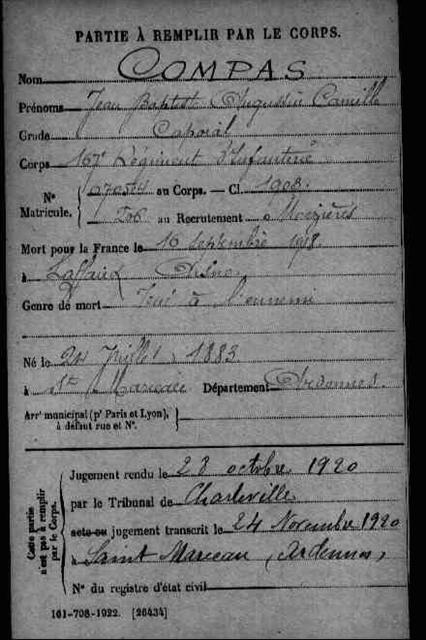 PARTIE À REMPLIR PAR LE CORPS.
Nom COMPAS
Prénoms Jean Baptist Augustin Camille
Grade Caporal
Corps 167e Régiment d'Infanterie
N° Matricule. au Corps. — Cl. 1908.
au Recrutement Mézières
Mort pour la France le 16 septembre 1918.
à Laffaux Aisne
Genre de mort Tué à l'ennemi
Né le 24 Juillet 1883
à St Marceau Département Ardennes.
Arrt municipal (pr Paris et Lyon),
à défaut rue et N°.
Cette partie n'est pas à remplir par le Corps.
Jugement rendu le 28 octobre 1920
par le Tribunal de Charleville
acte ou jugement transcrit le 24 Novembre 1920
à Saint Marceau (Ardennes)
N° du registre d'état civil
161-708-1922. [26434]